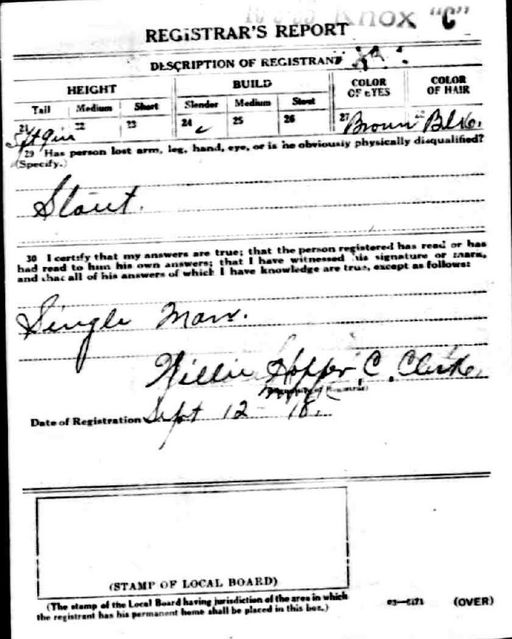 Knox "C"
REGISTRAR'S REPORT
DESCRIPTION OF REGISTRANT
HEIGHT BUILD COLOR OF EYES COLOR OF HAIR
Tall Medium Short Slender Medium Stout
21 22 23 24 25 26 27 Brown Blk.
29 Has person lost arm, leg, hand, eye, or is he obviously physically disqualified?
(Specify.)
Stout.
30 I certify that my answers are true; that the person registered has read or has
had read to him his own answers; that I have witnessed his signature or mark,
and that all of his answers of which I have knowledge are true, except as follows:
Single Man.
Willie Hopper C. Clerk
Date of Registration Sept 12 - 18.
(STAMP OF LOCAL BOARD)
(The stamp of the Local Board having jurisdiction of the area in which
the registrant has his permanent home shall be placed in this box.)
03—6171 (OVER)